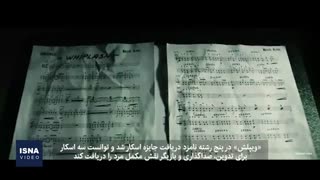 WHIPLASH
«ویپلش» در پنج رشته نامزد دریافت جایزه اسکار شد و توانست سه اسکار
برای تدوین، صداگذاری و بازیگر نقش مکمل مرد را دریافت کند
ISNA
VIDEO